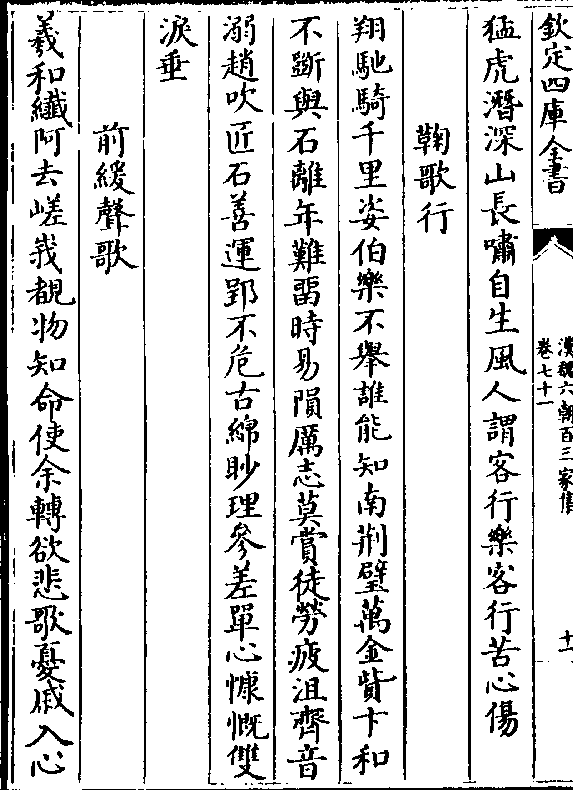 欽定四庫全書
漢魏六朝百三家集
卷七十一
十一
猛虎潛深山長嘯自生風人謂客行樂客行苦心傷
鞠歌行
翔馳騎千里姿伯樂不舉誰能知南荆璧萬金貲卞和
不斷與石離年難留時易隕厲志莫賞徒勞疲沮齊音
溺趙吹匠石善運郢不危古綿眇理參差單心慷慨雙
淚垂
前緩聲歌
羲和纖阿去嵯峩覩物知命使余轉欲悲歌憂戚入心